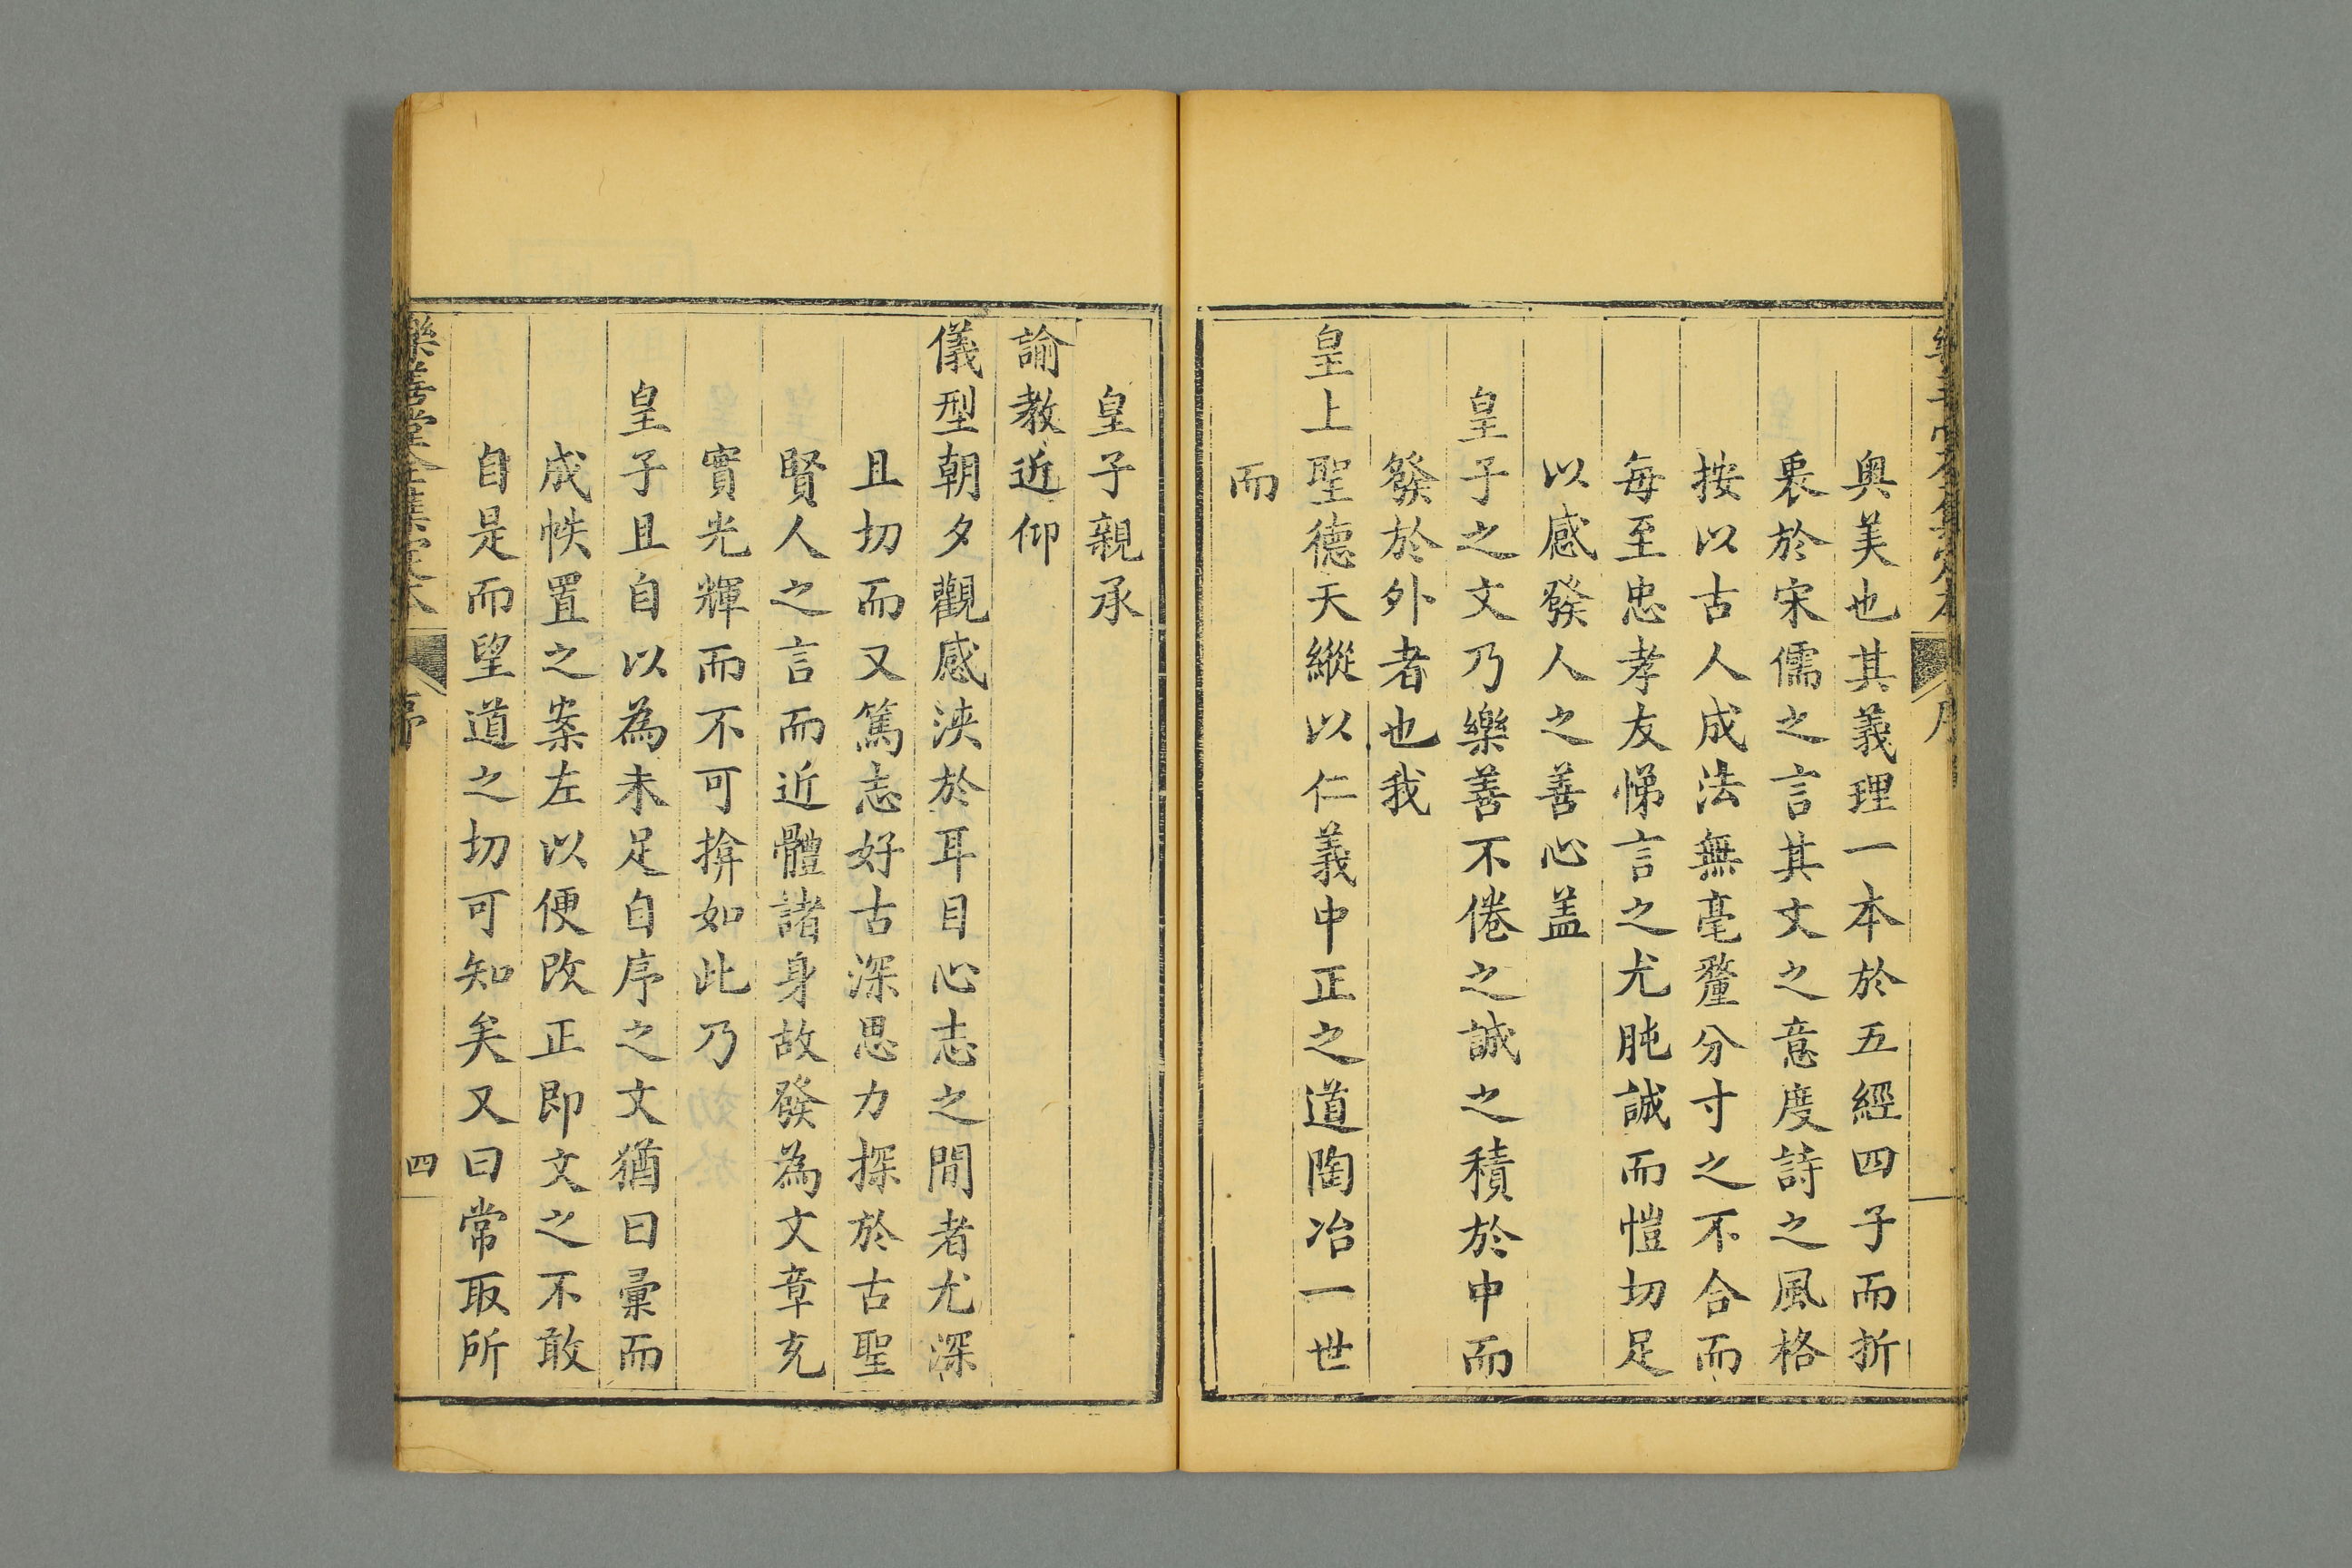 奥美也其義理一本於五經四子而折
衷於宋儒之言其文之意度詩之風格
按以古人成法無毫釐分寸之不合而
每至忠孝友悌言之尤肫誠而愷切足
以感發人之善心盖
皇子之文乃樂善不倦之誠之積於中而
發於外者也我
皇上聖德天縱以仁義中正之道陶冶一世
而
皇子親承
諭教近仰
儀型朝夕觀感浹於耳目心志之間者尤深
且切而又篤志好古深思力探於古聖
賢人之言而近體諸身故發為文章充
實光輝而不可揜如此乃
皇子且自以為未足自序之文猶曰彙而
成帙置之案左以便改正即文之不敢
自是而望道之切可知矣又曰常取所
樂善堂全集定本 序 四